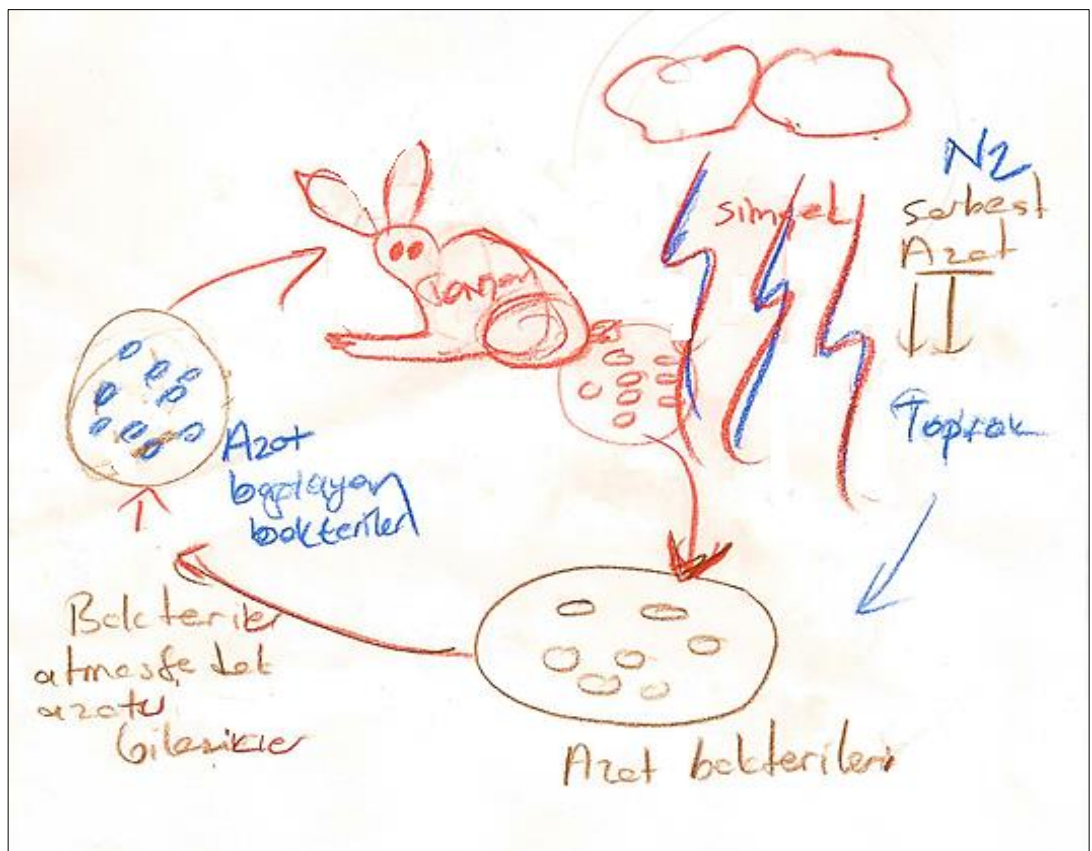 N2
serbest
Azot
simşek
Tavşan
Toprak
Azot
bağlayan
bakterileri
Bakteriler
azotu
bileşikler
Azot bakterileri